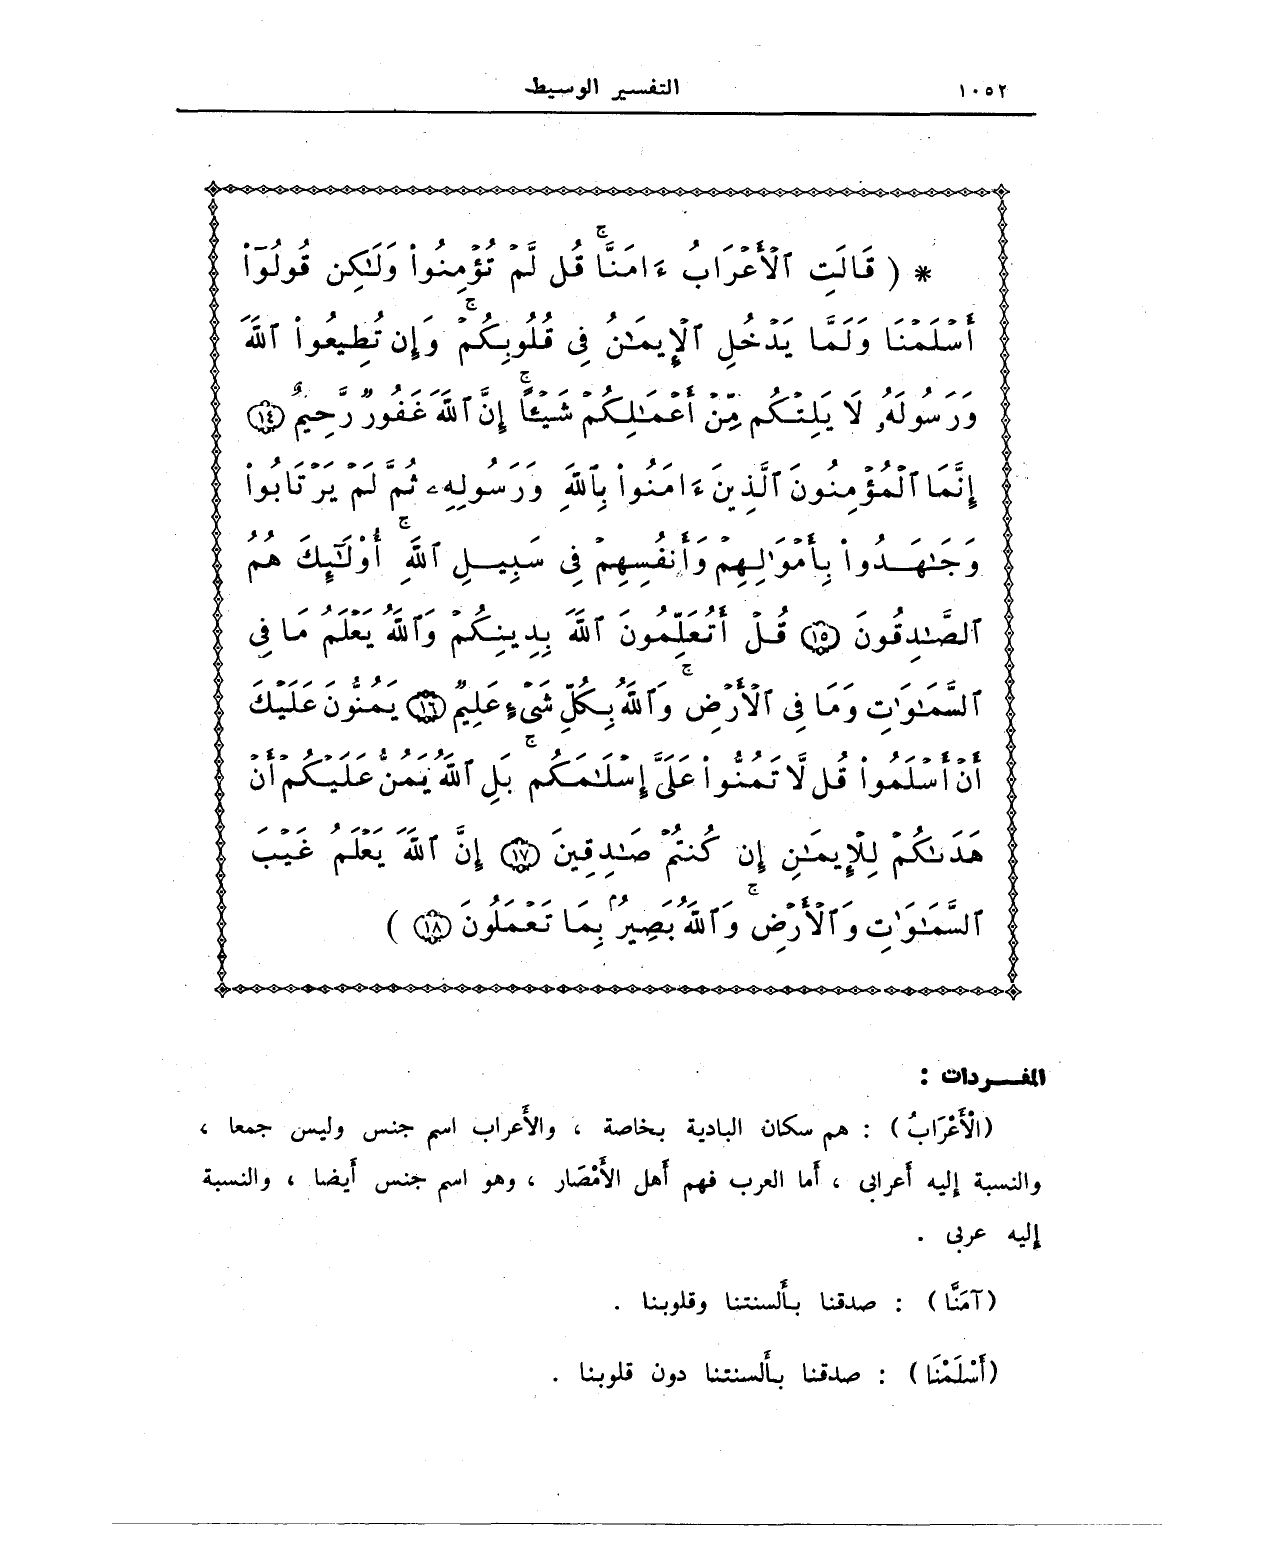 ١٠٥٢
التفسير الوسيط
* ( قَالَتِ ٱلْأَعْرَابُ ءَامَنَّاۖ قُل لَّمْ تُؤْمِنُوا۟ وَلَـٰكِن قُولُوٓا۟
أَسْلَمْنَا وَلَمَّا يَدْخُلِ ٱلْإِيمَـٰنُ فِى قُلُوبِكُمْۚ وَإِن تُطِيعُوا۟ ٱللَّهَ
وَرَسُولَهُۥ لَا يَلِتْكُم مِّنْ أَعْمَـٰلِكُمْ شَيْـًٔاۚ إِنَّ ٱللَّهَ غَفُورٌ رَّحِيمٌ ١٤
إِنَّمَا ٱلْمُؤْمِنُونَ ٱلَّذِينَ ءَامَنُوا۟ بِٱللَّهِ وَرَسُولِهِۦ ثُمَّ لَمْ يَرْتَابُوا۟
وَجَـٰهَدُوا۟ بِأَمْوَٰلِهِمْ وَأَنفُسِهِمْ فِى سَبِيلِ ٱللَّهِۚ أُو۟لَـٰٓئِكَ هُمُ
ٱلصَّـٰدِقُونَ ١٥ قُلْ أَتُعَلِّمُونَ ٱللَّهَ بِدِينِكُمْ وَٱللَّهُ يَعْلَمُ مَا فِى
ٱلسَّمَـٰوَٰتِ وَمَا فِى ٱلْأَرْضِۚ وَٱللَّهُ بِكُلِّ شَىْءٍ عَلِيمٌ ١٦ يَمُنُّونَ عَلَيْكَ
أَنْ أَسْلَمُوا۟ قُل لَّا تَمُنُّوا۟ عَلَىَّ إِسْلَـٰمَكُمۚ بَلِ ٱللَّهُ يَمُنُّ عَلَيْكُمْ أَنْ
هَدَىٰكُمْ لِلْإِيمَـٰنِ إِن كُنتُمْ صَـٰدِقِينَ ١٧ إِنَّ ٱللَّهَ يَعْلَمُ غَيْبَ
ٱلسَّمَـٰوَٰتِ وَٱلْأَرْضِۚ وَٱللَّهُ بَصِيرٌۢ بِمَا تَعْمَلُونَ ١٨ )
المفـــردات :
(الْأَعْرَابُ) : هم سكان البادية بخاصة ، والأَعراب اسم جنس وليس جمعا ،
والنسبة إليه أَعرابى ، أَما العرب فهم أَهل الأَمْصَار ، وهو اسم جنس أَيضا ، والنسبة
إليه عربى .
(آمَنَّا) : صدقنا بأَلسنتنا وقلوبنا .
(أَسْلَمْنَا) : صدقنا بأَلسنتنا دون قلوبنا .